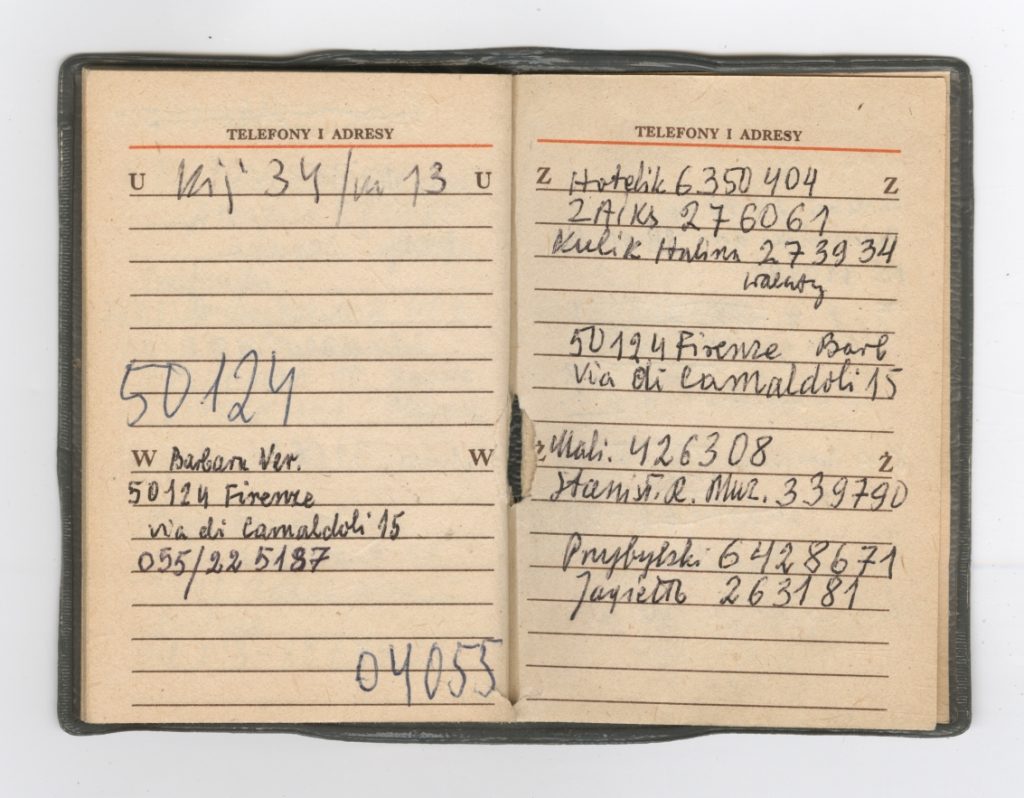 TELEFONY I ADRESY
U 34/m 13 U
50124
W Barbara Ver. W
50124 Firenze
via di Camaldoli 15
055/22 5187
04055
TELEFONY I ADRESY
Z Hotelik 6350404 Z
ZAiKS 276061
Kulik Halina 273934
50124 Firenze Barb
Via di Camaldoli 15
Ż Mali. 426308 Ż
Stanisł. R. Muz. 339790
Przybylski 6428671
Jagiełło 263181